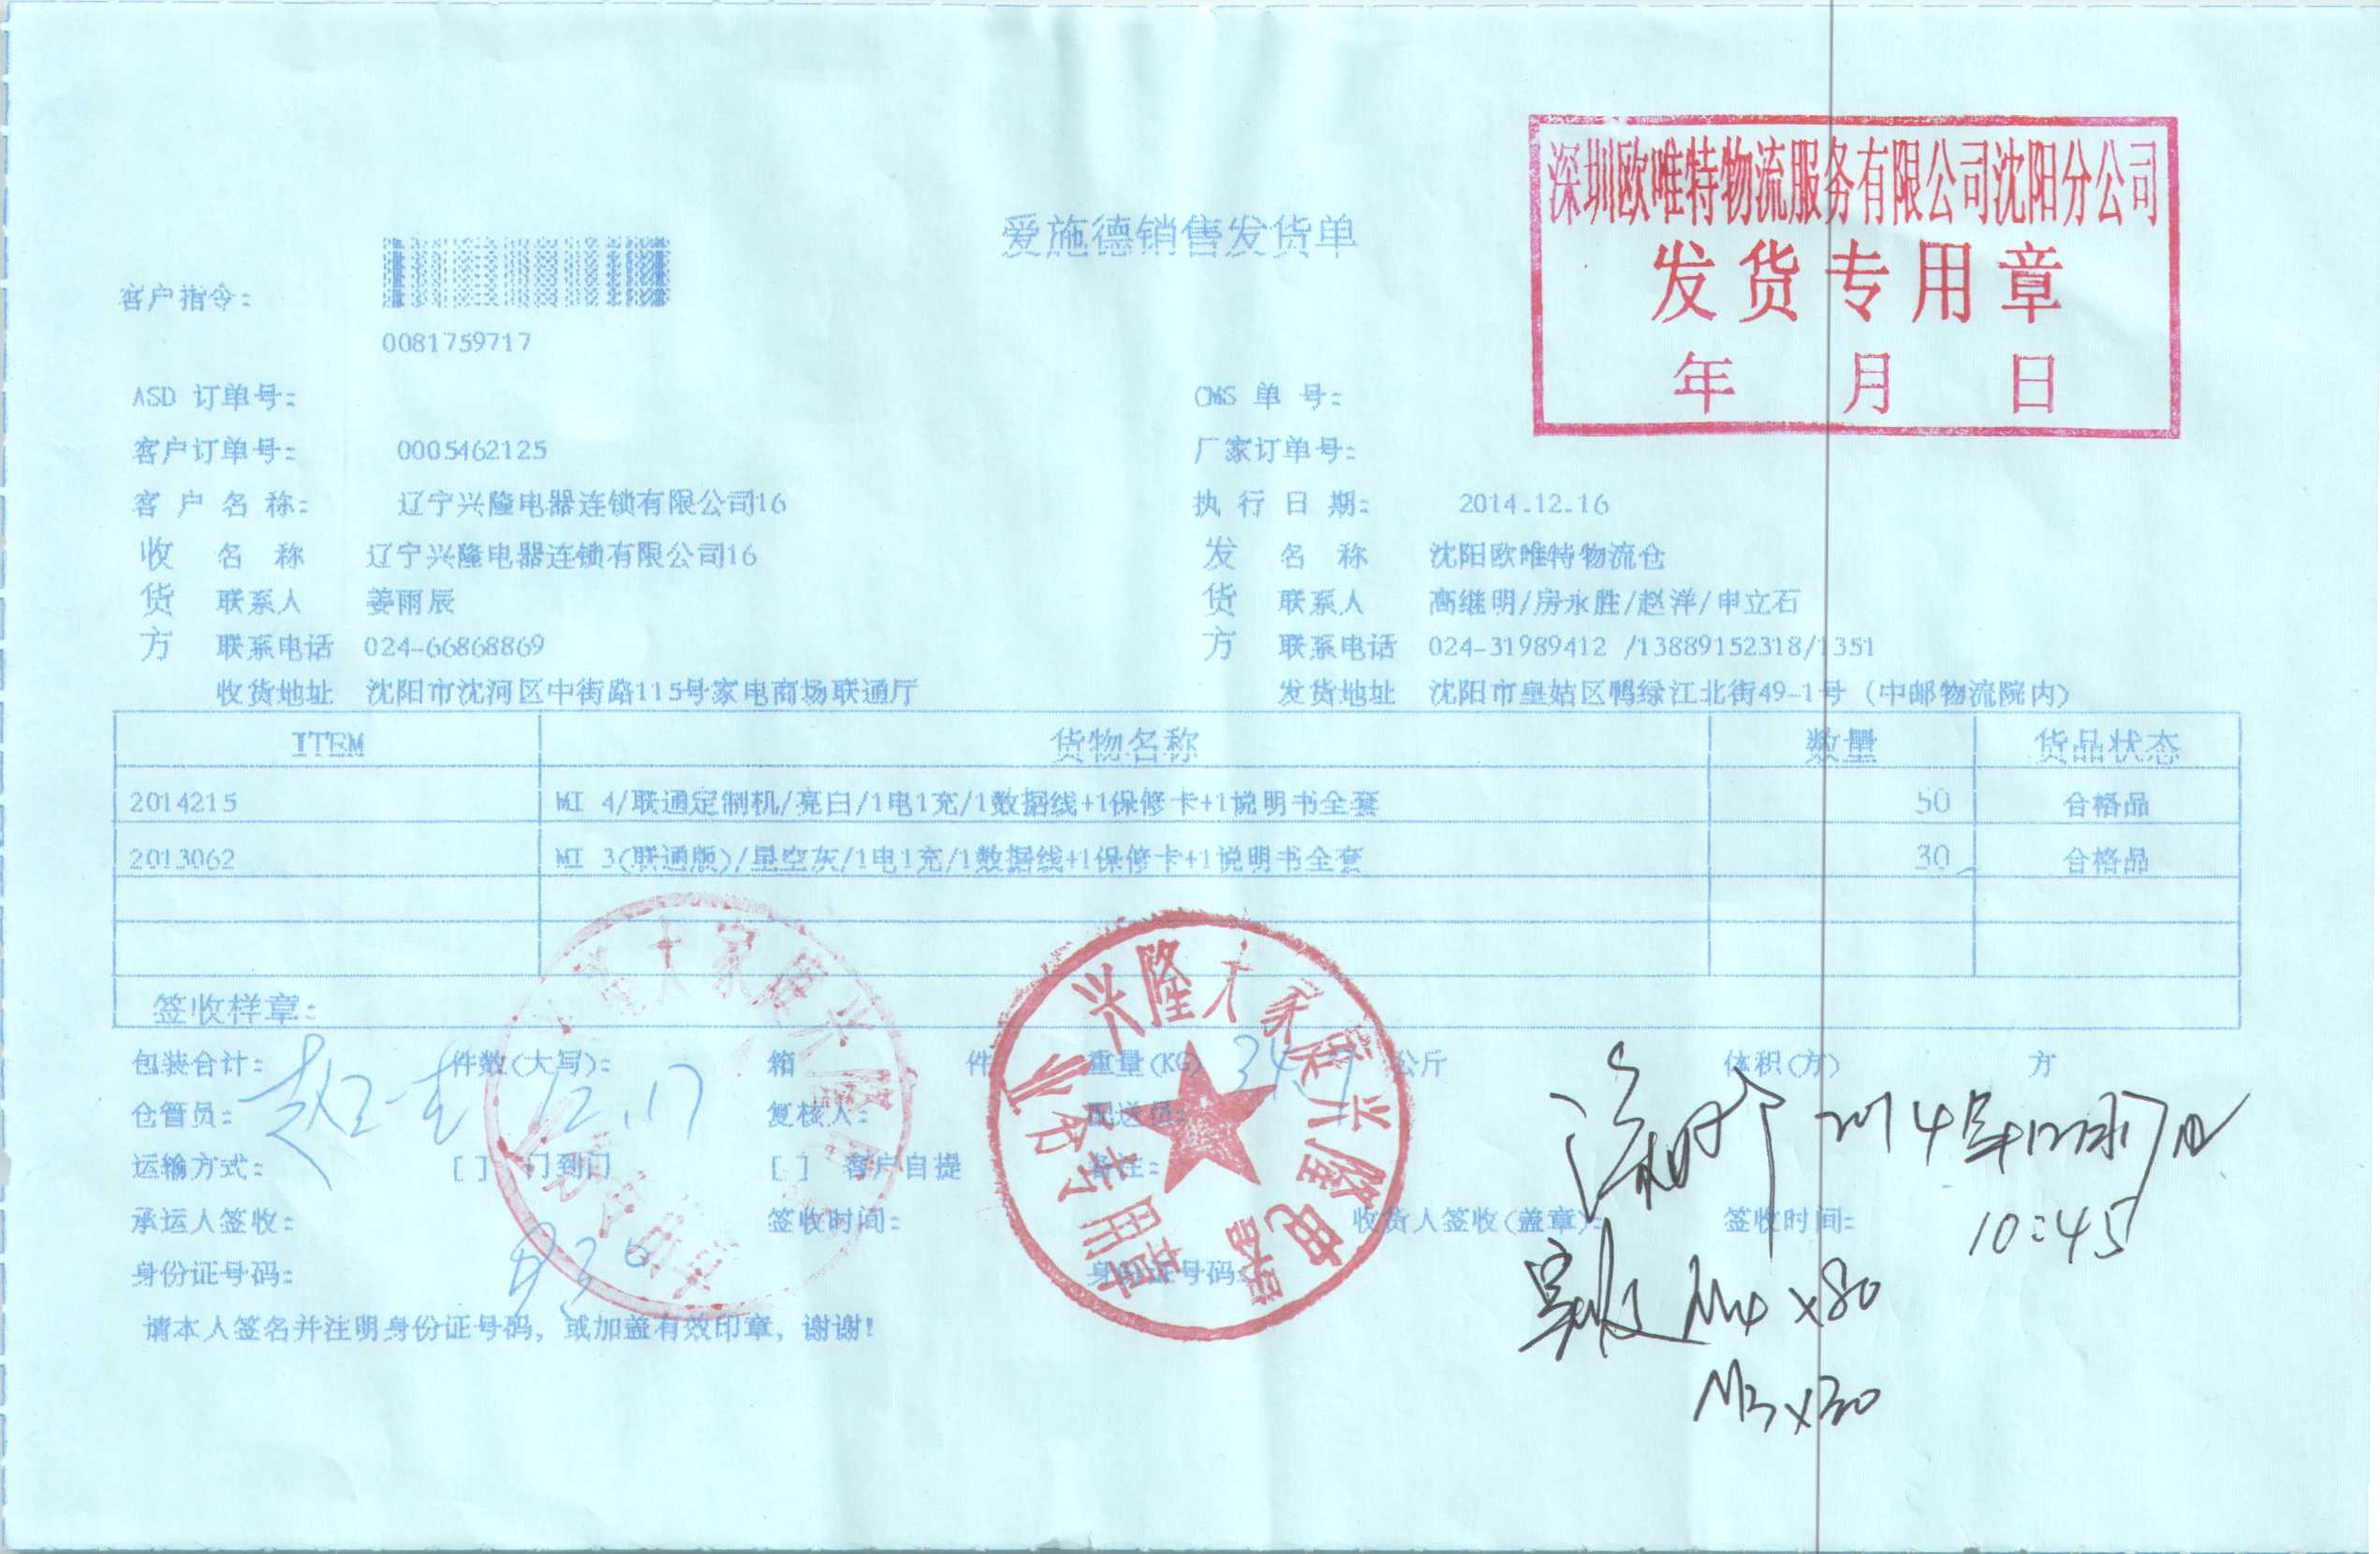 深圳欧唯特物流服务有限公司沈阳分公司
发货专用章
年 月 日
爱施德销售发货单
客户指令:
0081759717
ASD 订单号: CMS 单 号:
客户订单号: 0005462125 厂家订单号:
客 户 名 称: 辽宁兴隆电器连锁有限公司16 执 行 日 期: 2014.12.16
收 名 称 辽宁兴隆电器连锁有限公司16 发 名 称 沈阳欧唯特物流仓
货 联系人 姜雨辰 货 联系人 高继明/房永胜/赵洋/申立石
方 联系电话 024-66868869 方 联系电话 024-31989412 /13889152318/1351
收货地址 沈阳市沈河区中街路115号家电商场联通厅 发货地址 沈阳市皇姑区鸭绿江北街49-1号 (中邮物流院内)
ITEM 货物名称 数量 货品状态
2014215 MI 4/联通定制机/亮白/1电1充/1数据线+1保修卡+1说明书全套 50 合格品
2013062 MI 3(联通版)/星空灰/1电1充/1数据线+1保修卡+1说明书全套 30 合格品
签收样章:
包装合计: 件数(大写): 箱 件 重量(KG) 34.7 公斤 体积(方) 方
仓管员: 12.17 复核人: 配送员:
运输方式: [ ] 门到门 [ ] 客户自提 备注:
承运人签收: 签收时间: 收货人签收(盖章): 签收时间:
10:45
身份证号码: 身份证号码:
请本人签名并注明身份证号码, 或加盖有效印章, 谢谢!
兴隆大家庭兴隆电器
业务专用章
实收 M4 x80
M3 x30